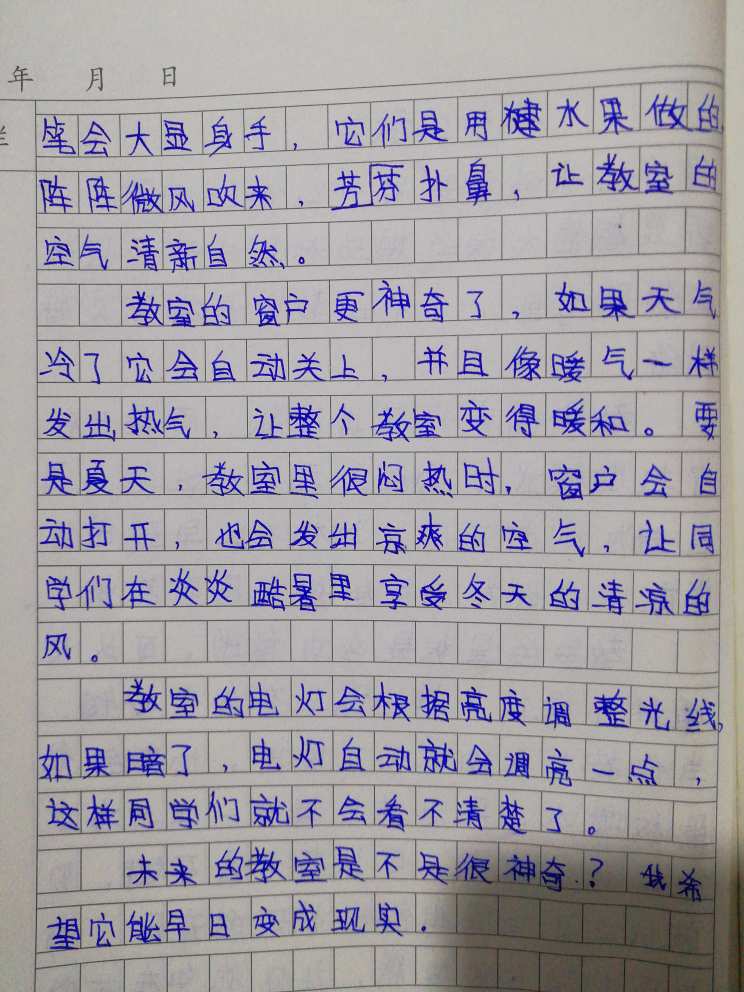 年 月 日
笔会大显身手，它们是用健水果做的，
阵阵微风吹来，芳芬扑鼻，让教室的
空气清新自然。
教室的窗户更神奇了，如果天气
冷了它会自动关上，并且像暖气一样
发出热气，让整个教室变得暖和。要
是夏天，教室里很闷热时，窗户会自
动打开，也会发出凉爽的空气，让同
学们在炎炎酷暑里享受冬天的清凉的
风。
教室的电灯会根据亮度调整光线，
如果暗了，电灯自动就会调亮一点，
这样同学们就不会看不清楚了。
未来的教室是不是很神奇？我希
望它能早日变成现实．